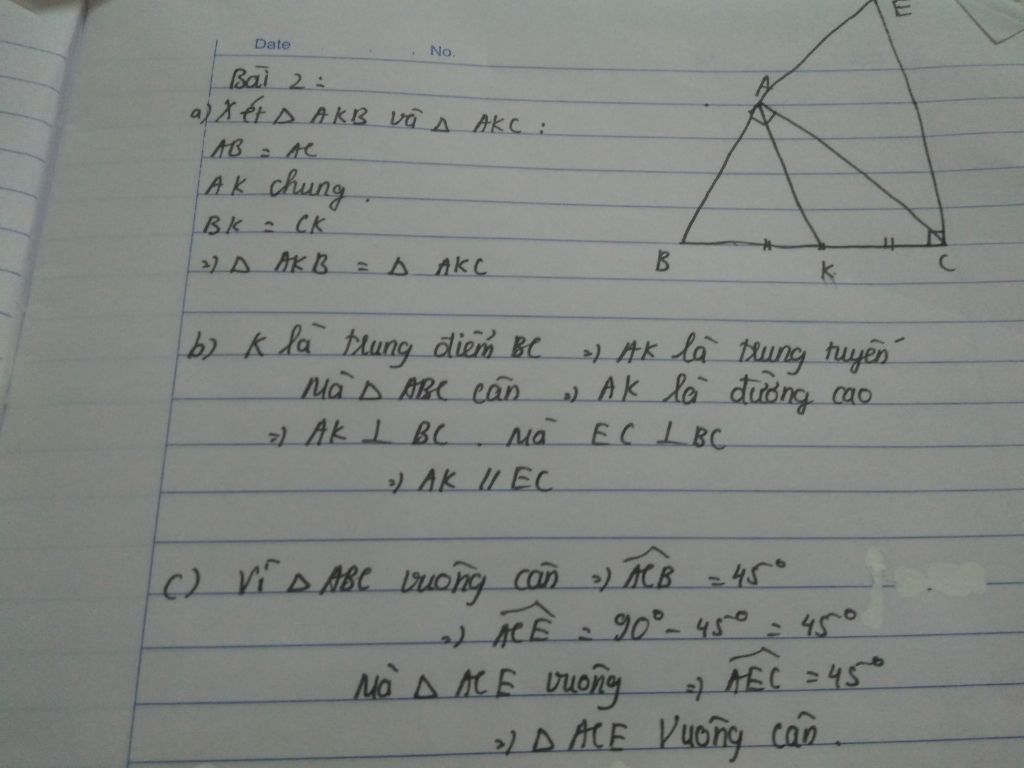 Date No.
Bài 2:
a) Xét Δ AKB và Δ AKC :
AB = AC
AK chung.
BK = CK
=) Δ AKB = Δ AKC
E
A
B K C
b) K là trung điểm BC =) AK là trung tuyến
Mà Δ ABC cân =) AK là đường cao
=) AK ⊥ BC . Mà EC ⊥ BC
=) AK // EC
c) Vì Δ ABC vuông cân =) \widehat{ACB} = 45°
=) \widehat{ACE} = 90° - 45° = 45°
Mà Δ ACE vuông =) \widehat{AEC} = 45°
=) Δ ACE Vuông cân.